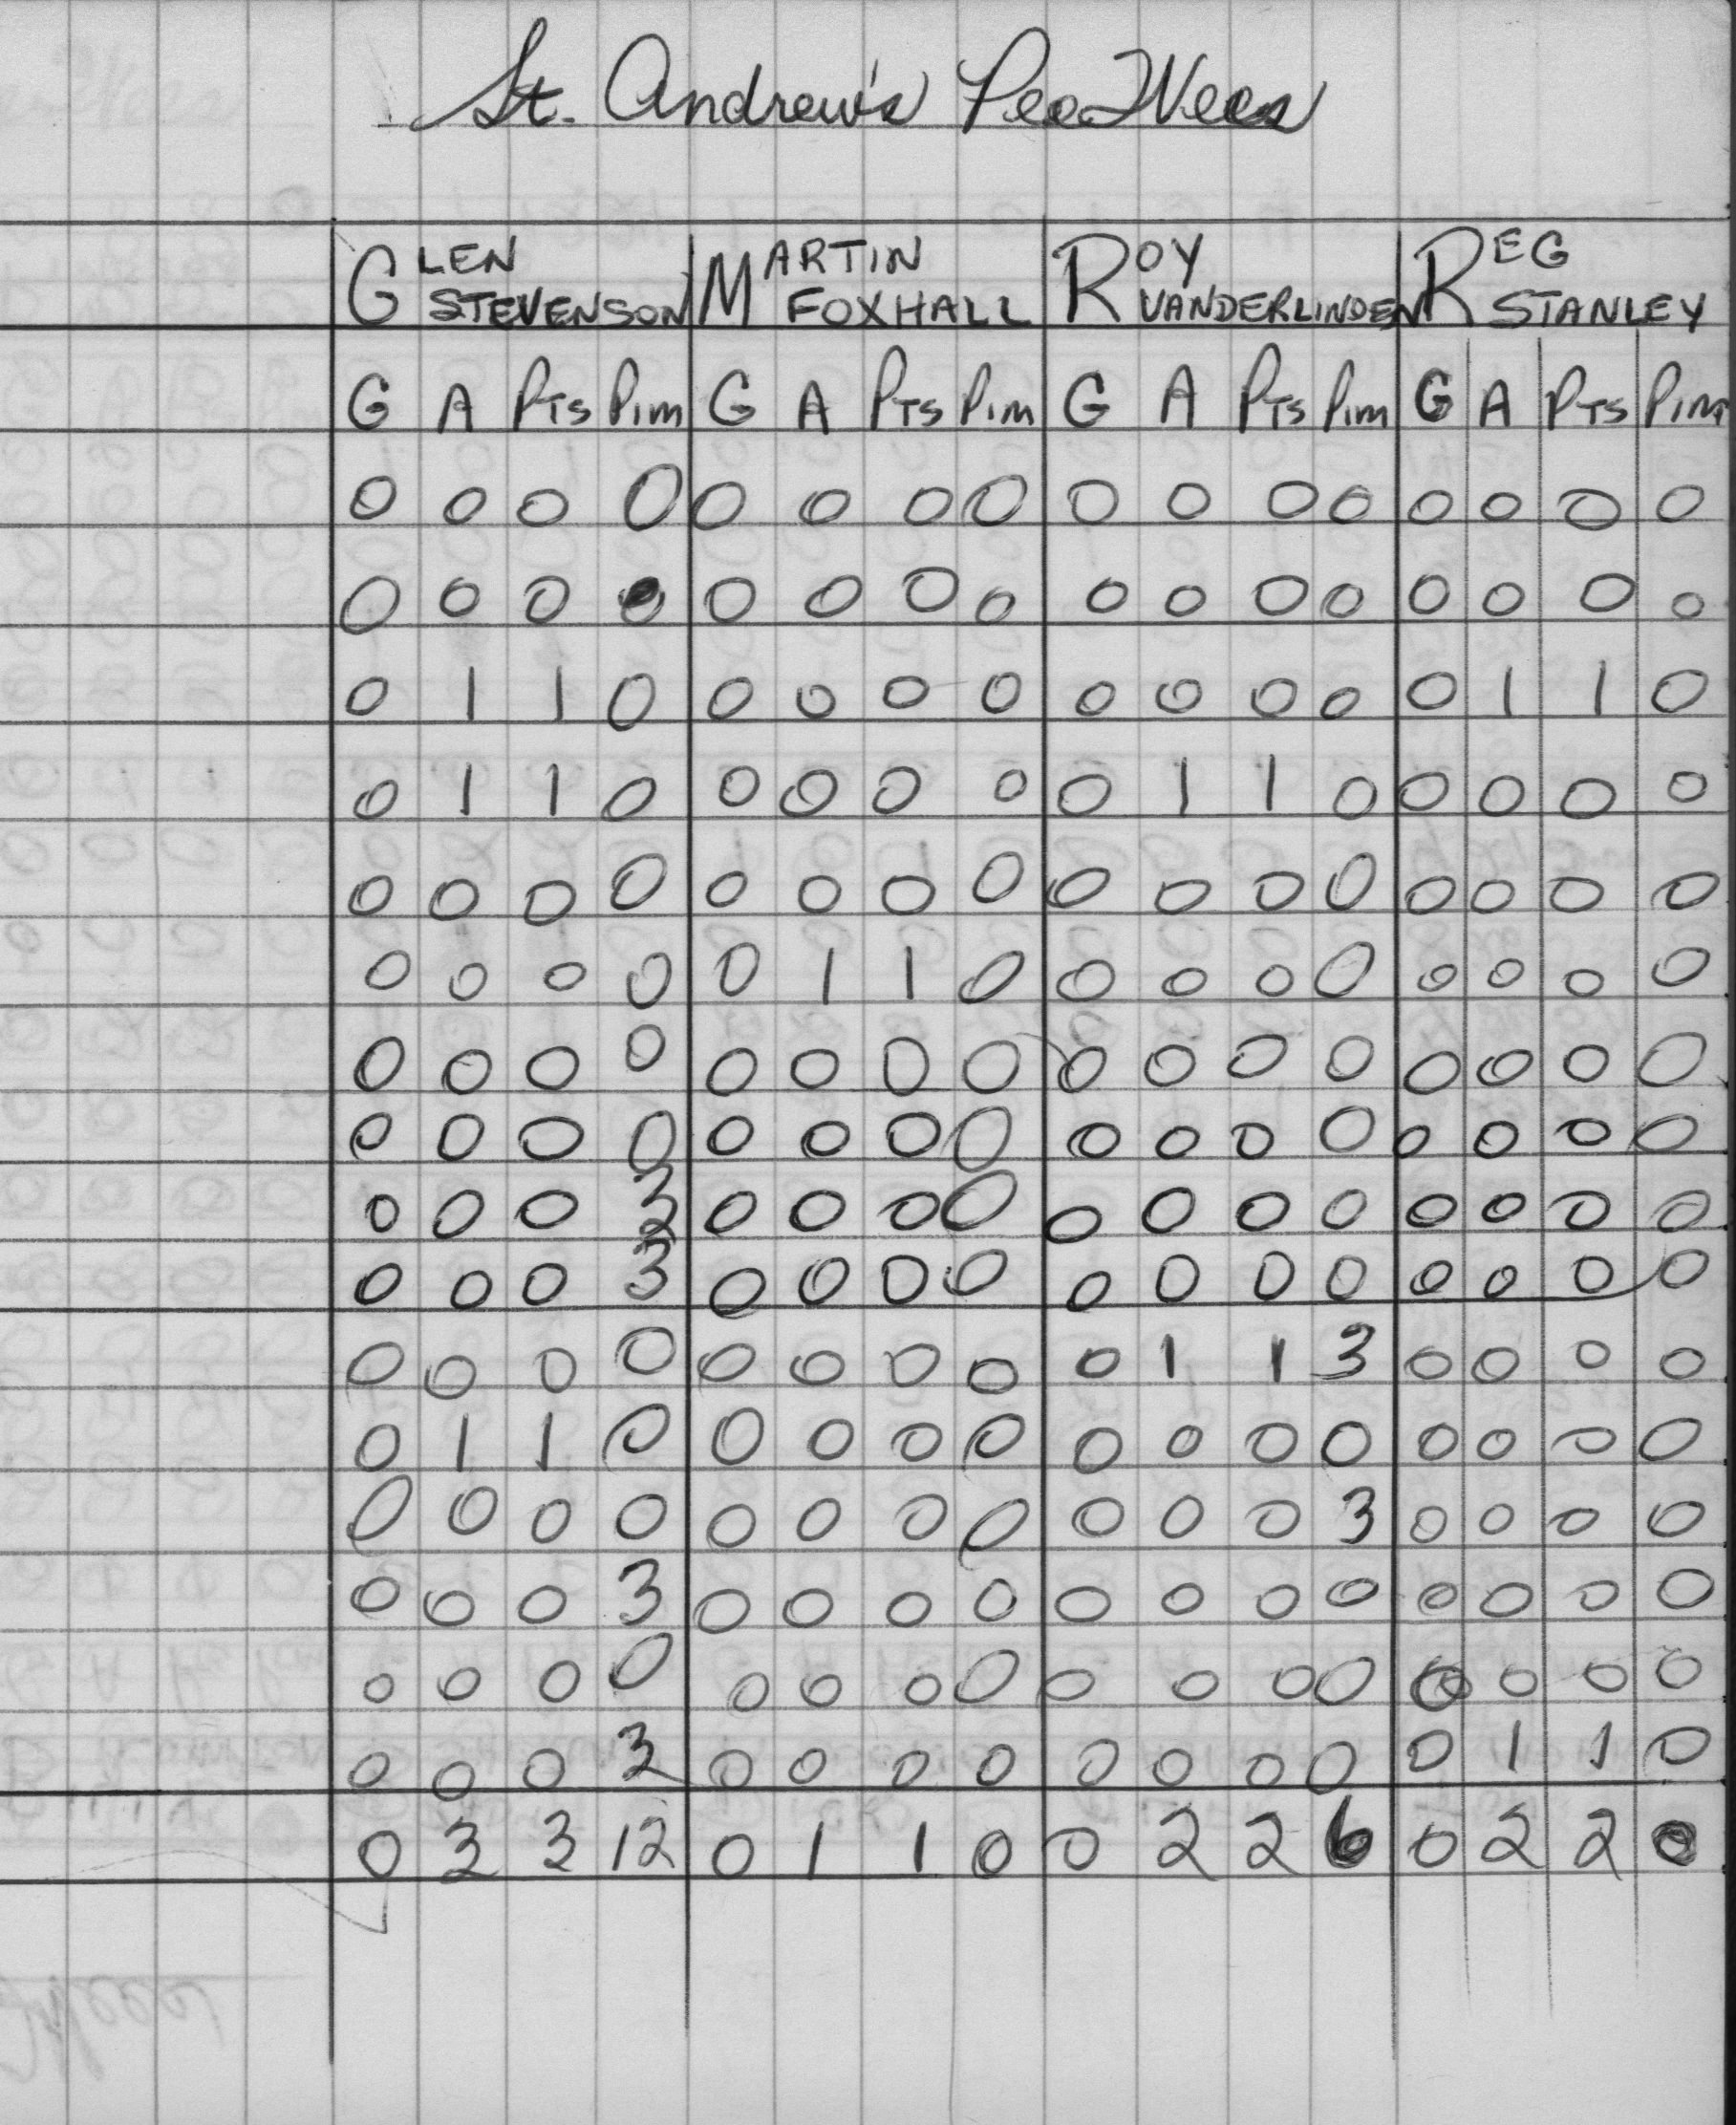 St. Andrew's PeeWees
GLEN STEVENSON MARTIN FOXHALL ROY VANDERLINDEN REG STANLEY
G A PTS PIM G A PTS PIM G A PTS PIM G A PTS PIM
0 0 0 0 0 0 0 0 0 0 0 0 0 0 0 0
0 0 0 0 0 0 0 0 0 0 0 0 0 0 0 0
0 1 1 0 0 0 0 0 0 0 0 0 0 1 1 0
0 1 1 0 0 0 0 0 0 1 1 0 0 0 0 0
0 0 0 0 0 0 0 0 0 0 0 0 0 0 0 0
0 0 0 0 0 1 1 0 0 0 0 0 0 0 0 0
0 0 0 0 0 0 0 0 0 0 0 0 0 0 0 0
0 0 0 0 0 0 0 0 0 0 0 0 0 0 0 0
0 0 0 3 0 0 0 0 0 0 0 0 0 0 0 0
0 0 0 3 0 0 0 0 0 0 0 0 0 0 0 0
0 0 0 0 0 0 0 0 0 1 1 3 0 0 0 0
0 1 1 0 0 0 0 0 0 0 0 0 0 0 0 0
0 0 0 0 0 0 0 0 0 0 0 3 0 0 0 0
0 0 0 3 0 0 0 0 0 0 0 0 0 0 0 0
0 0 0 0 0 0 0 0 0 0 0 0 0 0 0 0
0 0 0 3 0 0 0 0 0 0 0 0 0 1 1 0
0 3 3 12 0 1 1 0 0 2 2 6 0 2 2 0